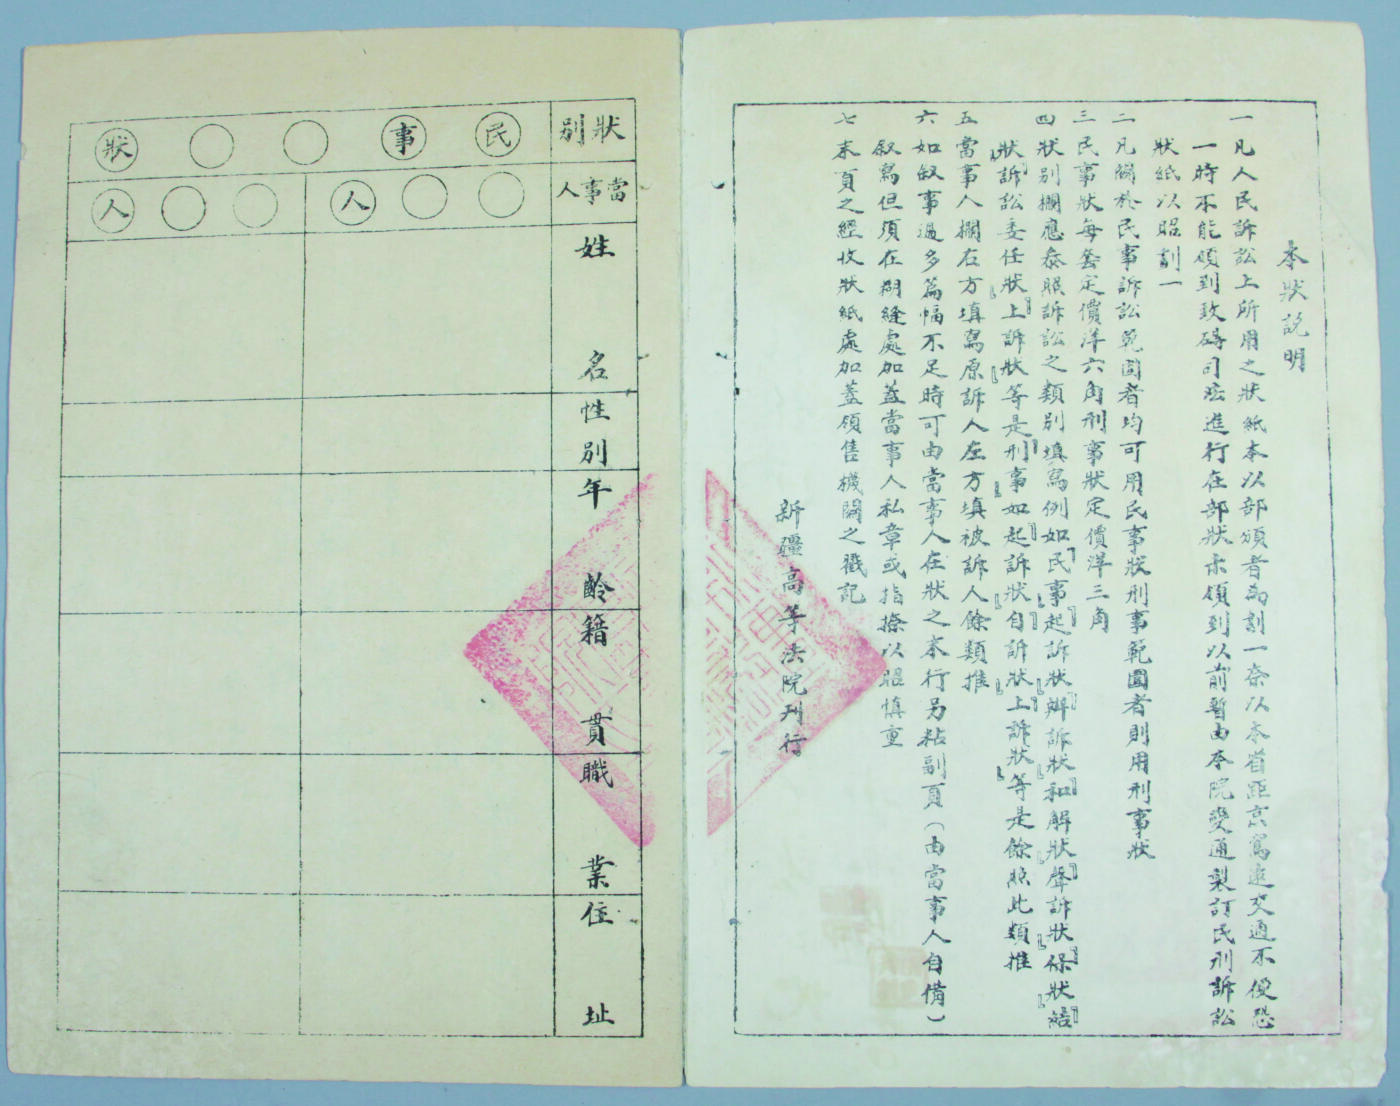 本狀説明
一凡人民訴訟上所用之狀紙本以部頒者為劃一奈以本省距京窵遠交通不便恐
一時不能領到致碍司法進行在部狀未領到以前暫由本院變通製訂民刑訴訟
狀紙以昭劃一
二凡關於民事訴訟範圍者均可用民事狀刑事範圍者則用刑事狀
三民事狀每套定價洋六角刑事狀定價洋三角
四狀別欄應叅照訴訟之類別填寫例如民事『起訴狀』『辯訴狀』『和解狀』『聲訴狀』『保狀』『結
狀』『訴訟委任狀』『上訴狀』等是刑事如『起訴狀』『自訴狀』『上訴狀』等是餘照此類推
五當事人欄右方填寫原訴人左方填被訴人餘類推
六如敘事過多篇幅不足時可由當事人在狀之本行另粘副頁（由當事人自備）
敘寫但須在糊縫處加蓋當事人私章或指捺以昭慎重
七末頁之經收狀紙處加蓋領售機關之戳記
新疆高等法院刋行
狀別
民事○○狀
當事人
○○人
○○人
姓名
性別
年齡
籍貫
職業
住址